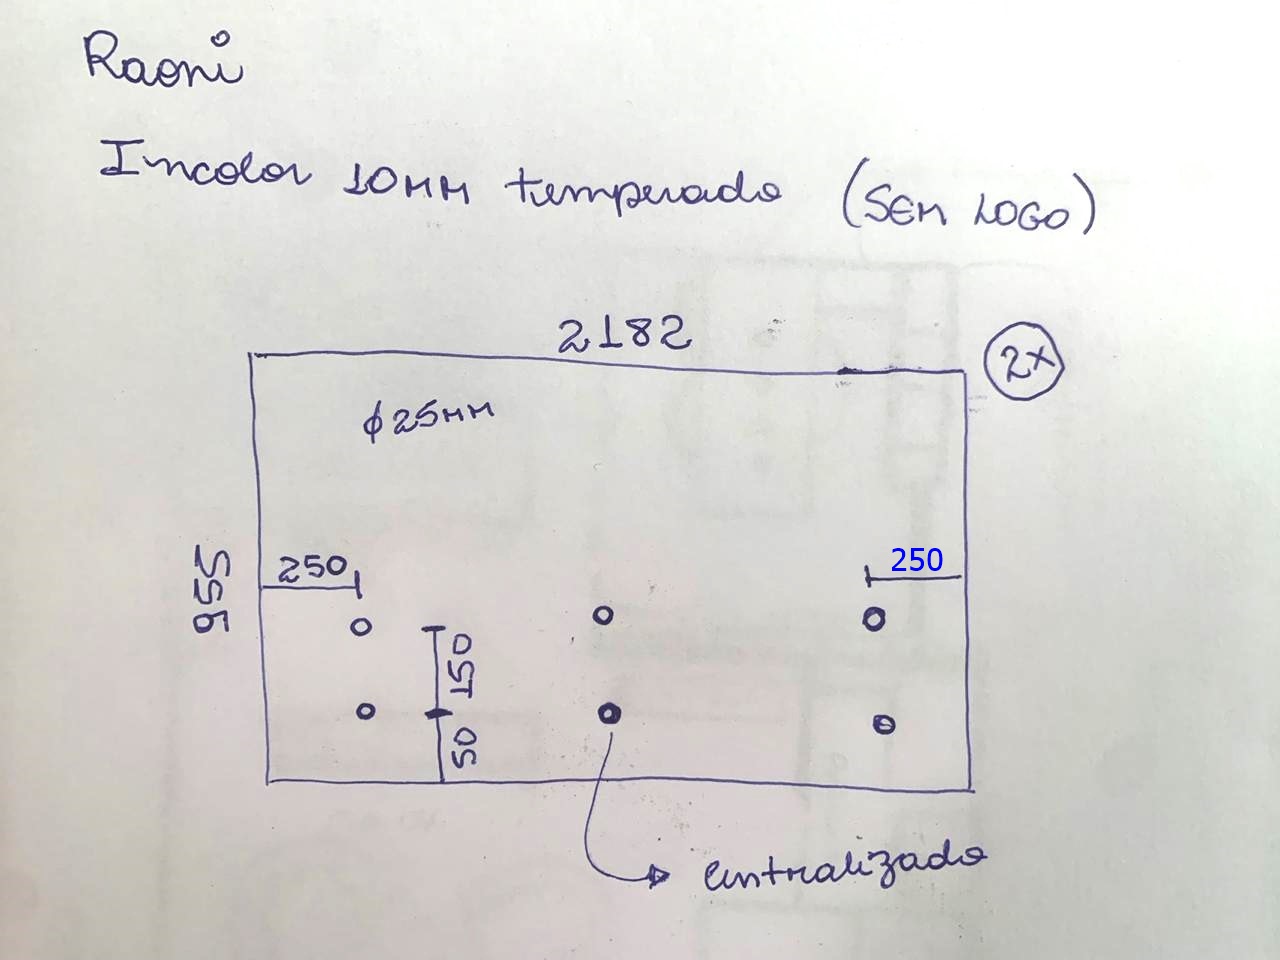 Raoni
Incolor 10mm temperado (SEM LOGO)
2182
2x
ϕ25mm
955
250
250
150
50
centralizado